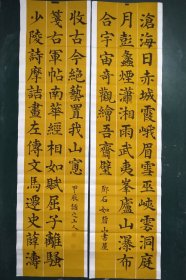 滄海日赤城霞峨眉雪巫峽雲洞庭
月彭蠡煙瀟湘雨武夷峯廬山瀑布
合宇宙奇觀繪吾齋壁
鄧石如碧山書屋
少陵詩摩詰畫左傳文馬遷史薛濤
箋右軍帖南華經相如賦屈子離騷
收古今絕藝置我山窻